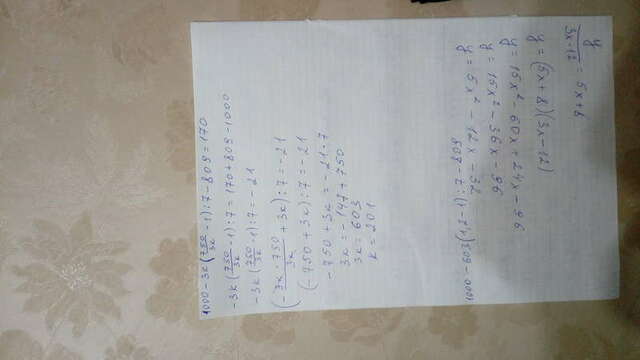 1000 - 3k (750/3k - 1) : 7 - 809 = 170
-3k (750/3k - 1) : 7 = 170 + 809 - 1000
-3k (750/3k - 1) : 7 = -21
(- 3k · 750/3k + 3k) : 7 = -21
(-750 + 3k) : 7 = -21
-750 + 3k = -21 · 7
3k = -147 + 750
3k = 603
k = 201
1000 - 603 (1,2 - 1) : 7 - 809
y/3x-12 = 5x + 8
y = (5x + 8)(3x - 12)
y = 15x² - 60x + 24x - 96
y = 15x² - 36x - 96
y = 5x² - 12x - 32